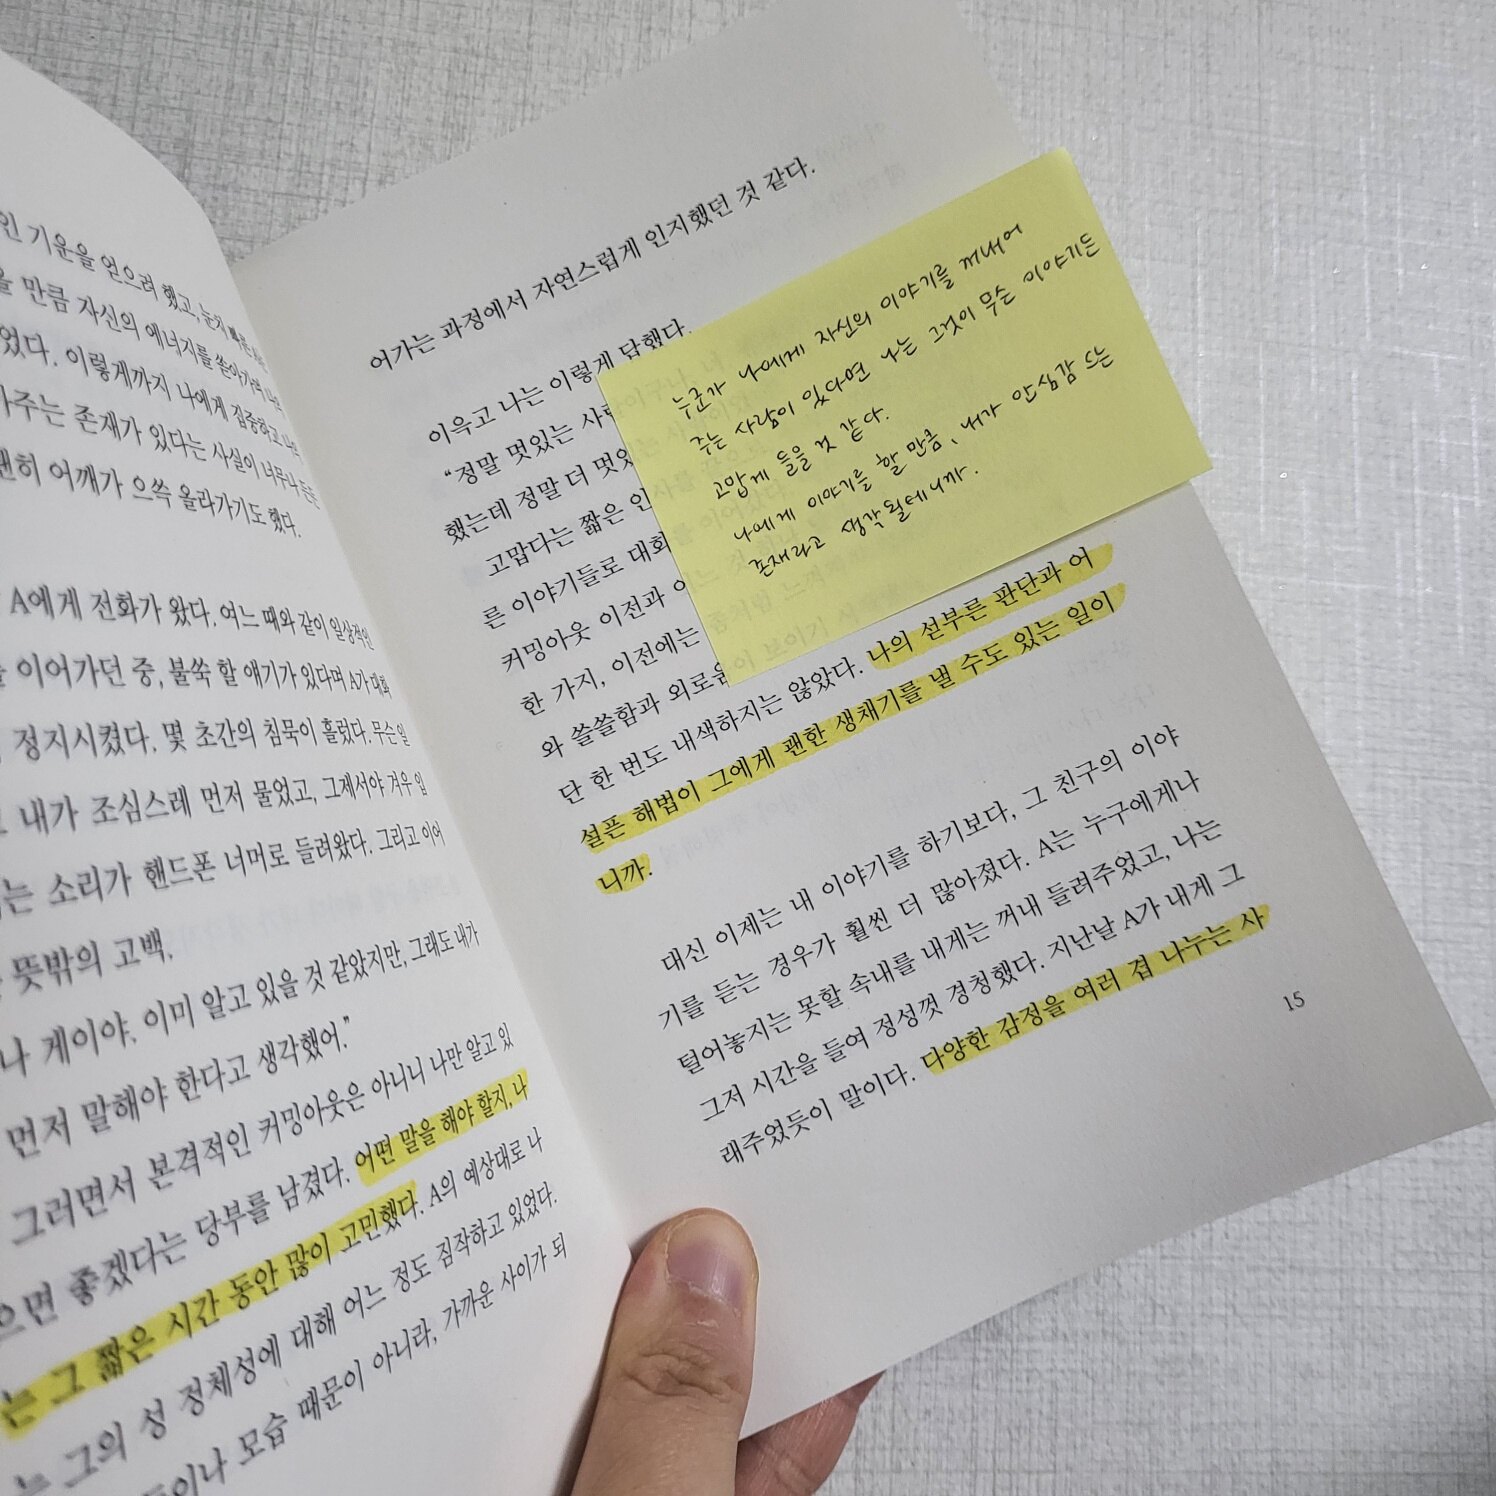 인 기운을 얻으려 했고, 눈치
만큼 자신의 에너지를 쏟아가며
었다. 이렇게까지 나에게 집중하고
주는 존재가 있다는 사실이 너무나 든든
괜히 어깨가 으쓱 올라가기도 했다.
A에게 전화가 왔다. 여느 때와 같이 일상적인
이어가던 중, 불쑥 할 얘기가 있다며 A가 대화
정지시켰다. 몇 초간의 침묵이 흘렀다. 무슨 일
내가 조심스레 먼저 물었고, 그제서야 겨우 입
는 소리가 핸드폰 너머로 들려왔다. 그리고 이어
뜻밖의 고백.
나 게이야. 이미 알고 있을 것 같았지만, 그래도 내가
먼저 말해야 한다고 생각했어.”
그러면서 본격적인 커밍아웃은 아니니 나만 알고 있
으면 좋겠다는 당부를 남겼다. 어떤 말을 해야 할지, 나
는 그 짧은 시간 동안 많이 고민했다. A의 예상대로 나
는 그의 성 정체성에 대해 어느 정도 짐작하고 있었다.
이나 모습 때문이 아니라, 가까운 사이가 되
어가는 과정에서 자연스럽게 인지했던 것 같다.
이윽고 나는 이렇게 답했다.
“정말 멋있는 사람이구나, 너
했는데 정말 더 멋있
고맙다는 짧은 인사를
른 이야기들로 대화를 이어
커밍아웃 이전과
한 가지, 이전에는
와 쓸쓸함과 외로움이 보이기
단 한 번도 내색하지는 않았다. 나의 섣부른 판단과 어
설픈 해법이 그에게 괜한 생채기를 낼 수도 있는 일이
니까.
대신 이제는 내 이야기를 하기보다, 그 친구의 이야
기를 듣는 경우가 훨씬 더 많아졌다. A는 누구에게나
털어놓지는 못할 속내를 내게는 꺼내 들려주었고, 나는
그저 시간을 들여 정성껏 경청했다. 지난날 A가 내게 그
래주었듯이 말이다. 다양한 감정을 여러 겹 나누는 사
15
누군가 나에게 자신의 이야기를 꺼내어
주는 사람이 있다면 나는 그것이 무슨 이야기든
고맙게 들을 것 같다.
나에게 이야기를 할 만큼, 내가 안심감 드는
존재라고 생각될테니까.